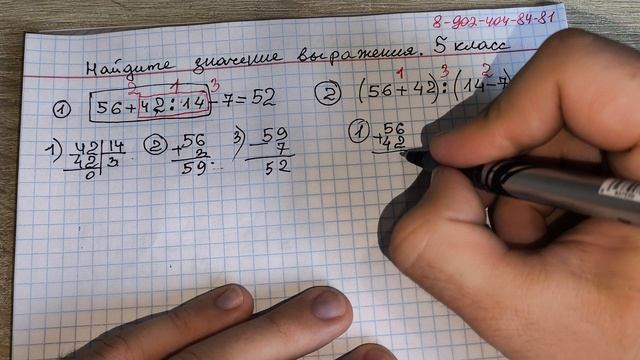 8-902-404-84-81
Найдите значение выражения. 5 класс
2 1 3
① 56+42:14-7=52
1 3 2
② (56+42):(14-7)
1) 42 14
42 3
0
② +56
3
59
3) -59
7
52
① +56
42